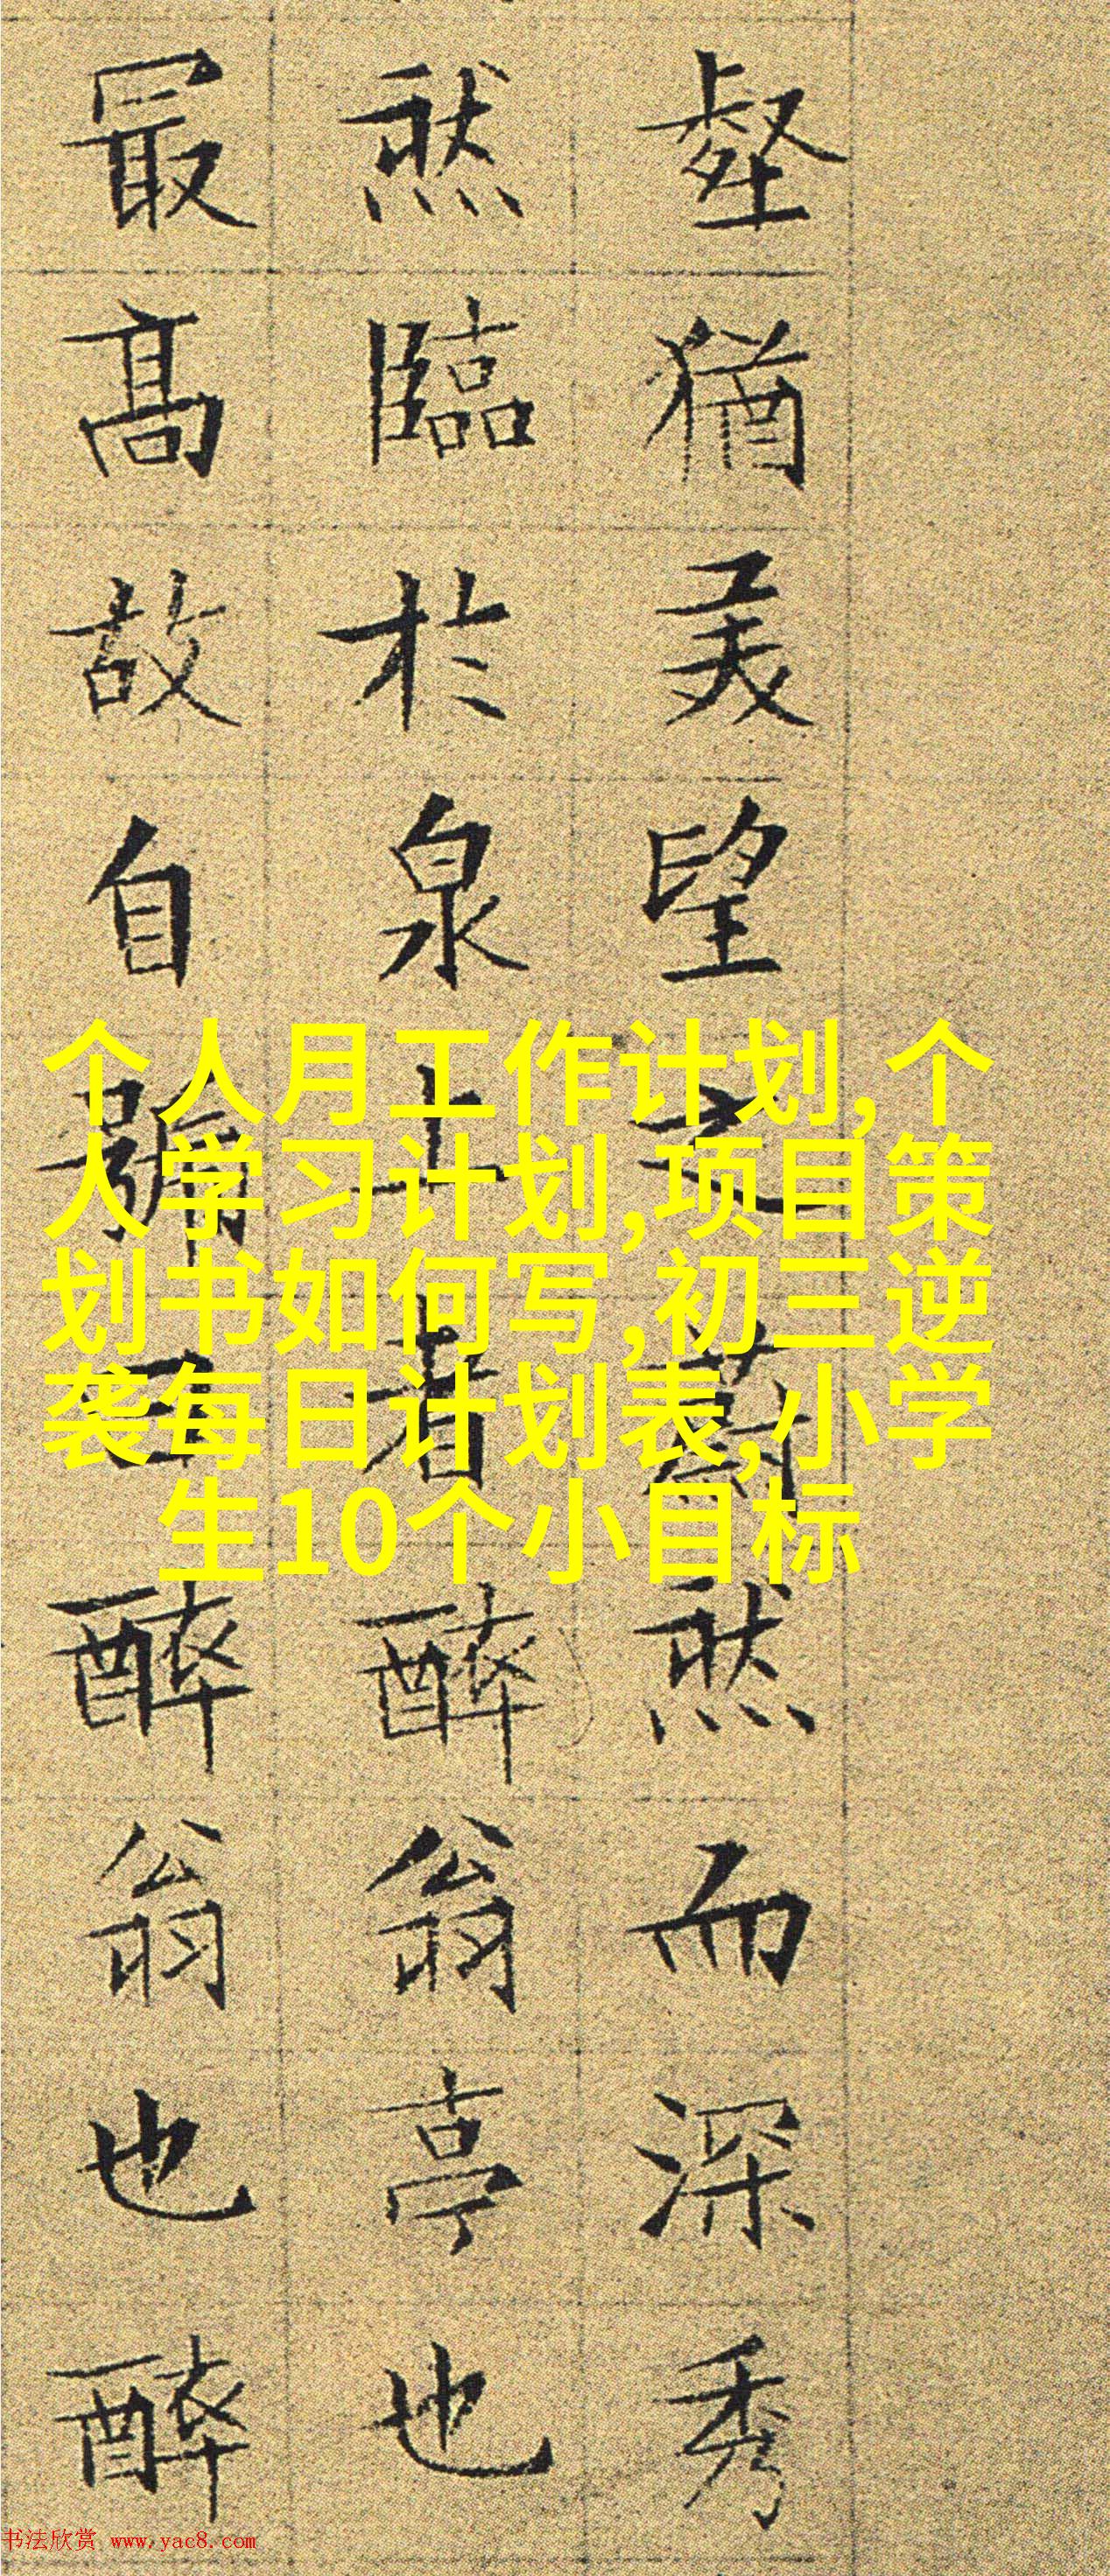 壑猶美望之蔚然而深秀
然臨於泉上者醉翁亭也
冣髙故自號曰醉翁也醉
个人月工作计划,个
人学习计划,项目策
划书如何写,初三逆
袭每日计划表,小学
生10个小目标
书法欣赏 www.yac8.com